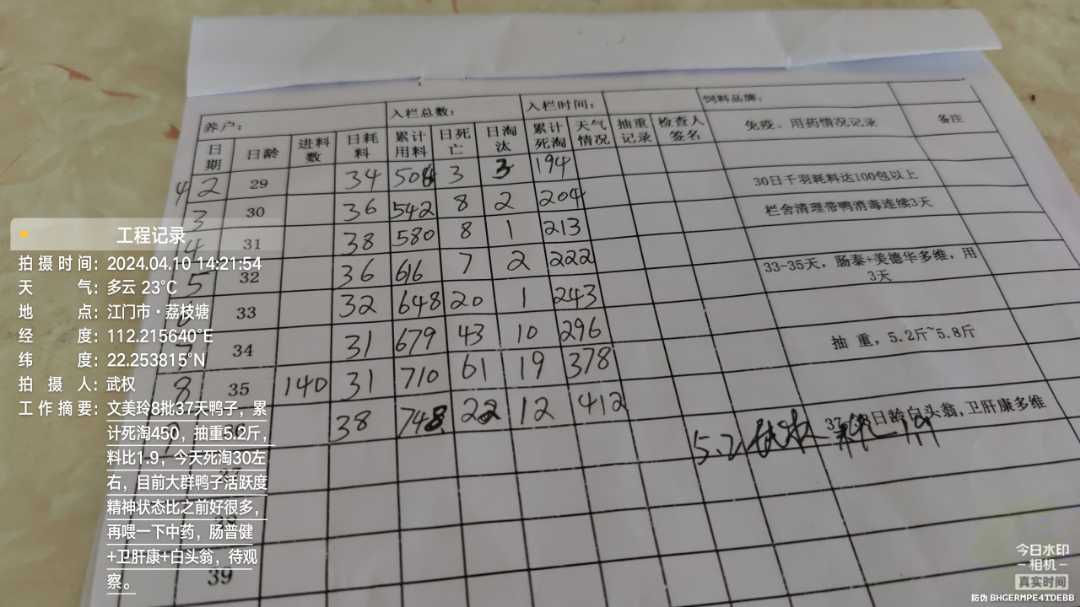 养户：
入栏总数：
入栏时间：
饲料品牌：
日期 日龄 进料数 日耗料 累计用料 日死亡 日淘汰 累计死淘 天气情况 抽重记录 检查人签名 免疫、用药情况记录 备注
4 2 29 34 508 3 3 194
3 30 36 542 8 2 204 30日千羽耗料达100包以上
4 31 38 580 8 1 213 栏舍清理带鸭消毒连续3天
5 32 36 616 7 2 222
33 32 648 20 1 243 33-35天，肠泰+美德华多维，用3天
7 34 31 679 43 10 296
8 35 140 31 710 61 19 378 抽 重，5.2斤~5.8斤
38 748 22 12 412
日龄白头翁，卫肝康多维
5.2
39
工程记录
拍摄时间：2024.04.10 14:21:54
天气：多云 23℃
地点：江门市·荔枝塘
经度：112.215640°E
纬度：22.253815°N
拍摄人：武权
工作摘要：文美玲8批37天鸭子，累
计死淘450，抽重5.2斤，
料比1.9，今天死淘30左
右，目前大群鸭子活跃度
精神状态比之前好很多，
再喂一下中药，肠普健
+卫肝康+白头翁，待观
察。
今日水印
相机
真实时间
防伪 BHGERMPE4TDEBB